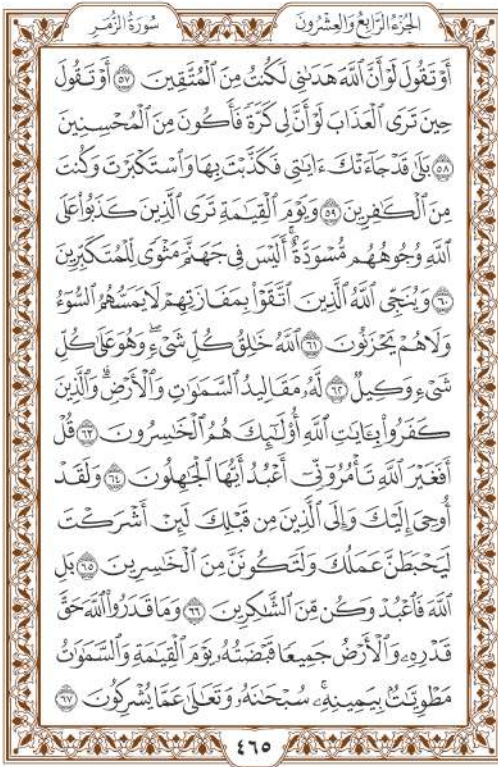 سُورَةُ الزُّمَرِ
الجُزْءُ الرَّابِعُ وَالعِشْرُونَ
أَوْ تَقُولَ لَوْ أَنَّ ٱللَّهَ هَدَىٰنِي لَكُنتُ مِنَ ٱلْمُتَّقِينَ ٥٧ أَوْ تَقُولَ
حِينَ تَرَى ٱلْعَذَابَ لَوْ أَنَّ لِي كَرَّةً فَأَكُونَ مِنَ ٱلْمُحْسِنِينَ
٥٨ بَلَىٰ قَدْ جَآءَتْكَ ءَايَٰتِي فَكَذَّبْتَ بِهَا وَٱسْتَكْبَرْتَ وَكُنتَ
مِنَ ٱلْكَٰفِرِينَ ٥٩ وَيَوْمَ ٱلْقِيَٰمَةِ تَرَى ٱلَّذِينَ كَذَبُوا۟ عَلَى
ٱللَّهِ وُجُوهُهُم مُّسْوَدَّةٌ ۚ أَلَيْسَ فِي جَهَنَّمَ مَثْوًى لِّلْمُتَكَبِّرِينَ
٦٠ وَيُنَجِّي ٱللَّهُ ٱلَّذِينَ ٱتَّقَوْا۟ بِمَفَازَتِهِمْ لَا يَمَسُّهُمُ ٱلسُّوٓءُ
وَلَا هُمْ يَحْزَنُونَ ٦١ ٱللَّهُ خَٰلِقُ كُلِّ شَيْءٍ ۖ وَهُوَ عَلَىٰ كُلِّ
شَيْءٍ وَكِيلٌ ٦٢ لَّهُۥ مَقَالِيدُ ٱلسَّمَٰوَٰتِ وَٱلْأَرْضِ ۗ وَٱلَّذِينَ
كَفَرُوا۟ بِـَٔايَٰتِ ٱللَّهِ أُو۟لَٰٓئِكَ هُمُ ٱلْخَٰسِرُونَ ٦٣ قُلْ
أَفَغَيْرَ ٱللَّهِ تَأْمُرُوٓنِّيٓ أَعْبُدُ أَيُّهَا ٱلْجَٰهِلُونَ ٦٤ وَلَقَدْ
أُوحِيَ إِلَيْكَ وَإِلَى ٱلَّذِينَ مِن قَبْلِكَ لَئِنْ أَشْرَكْتَ
لَيَحْبَطَنَّ عَمَلُكَ وَلَتَكُونَنَّ مِنَ ٱلْخَٰسِرِينَ ٦٥ بَلِ
ٱللَّهَ فَٱعْبُدْ وَكُن مِّنَ ٱلشَّٰكِرِينَ ٦٦ وَمَا قَدَرُوا۟ ٱللَّهَ حَقَّ
قَدْرِهِۦ وَٱلْأَرْضُ جَمِيعًا قَبْضَتُهُۥ يَوْمَ ٱلْقِيَٰمَةِ وَٱلسَّمَٰوَٰتُ
مَطْوِيَّٰتٌۢ بِيَمِينِهِۦ ۚ سُبْحَٰنَهُۥ وَتَعَٰلَىٰ عَمَّا يُشْرِكُونَ ٦٧
٤٦٥